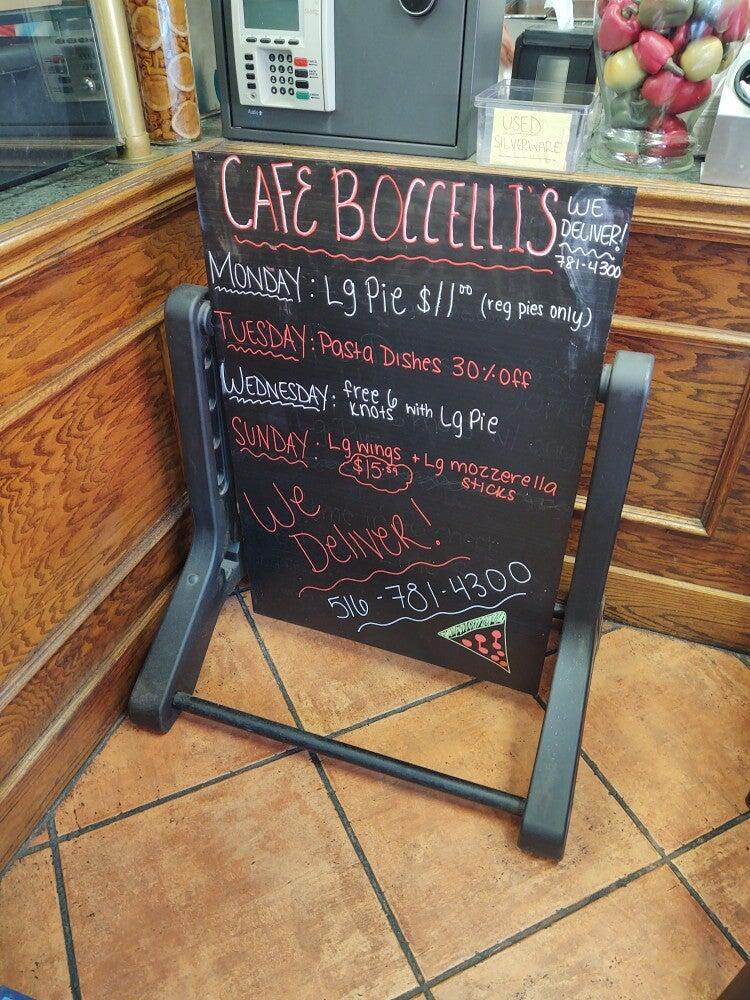 USED
SILVERWARE
CAFE BOCCELLI'S
WE
DELIVER!
781-4300
MONDAY: Lg Pie $11.00 (reg pies only)
TUESDAY: Pasta Dishes 30% off
WEDNESDAY: free 6 knots with Lg Pie
SUNDAY: Lg wings + Lg mozzerella sticks
$15.99
We
Deliver!
516-781-4300